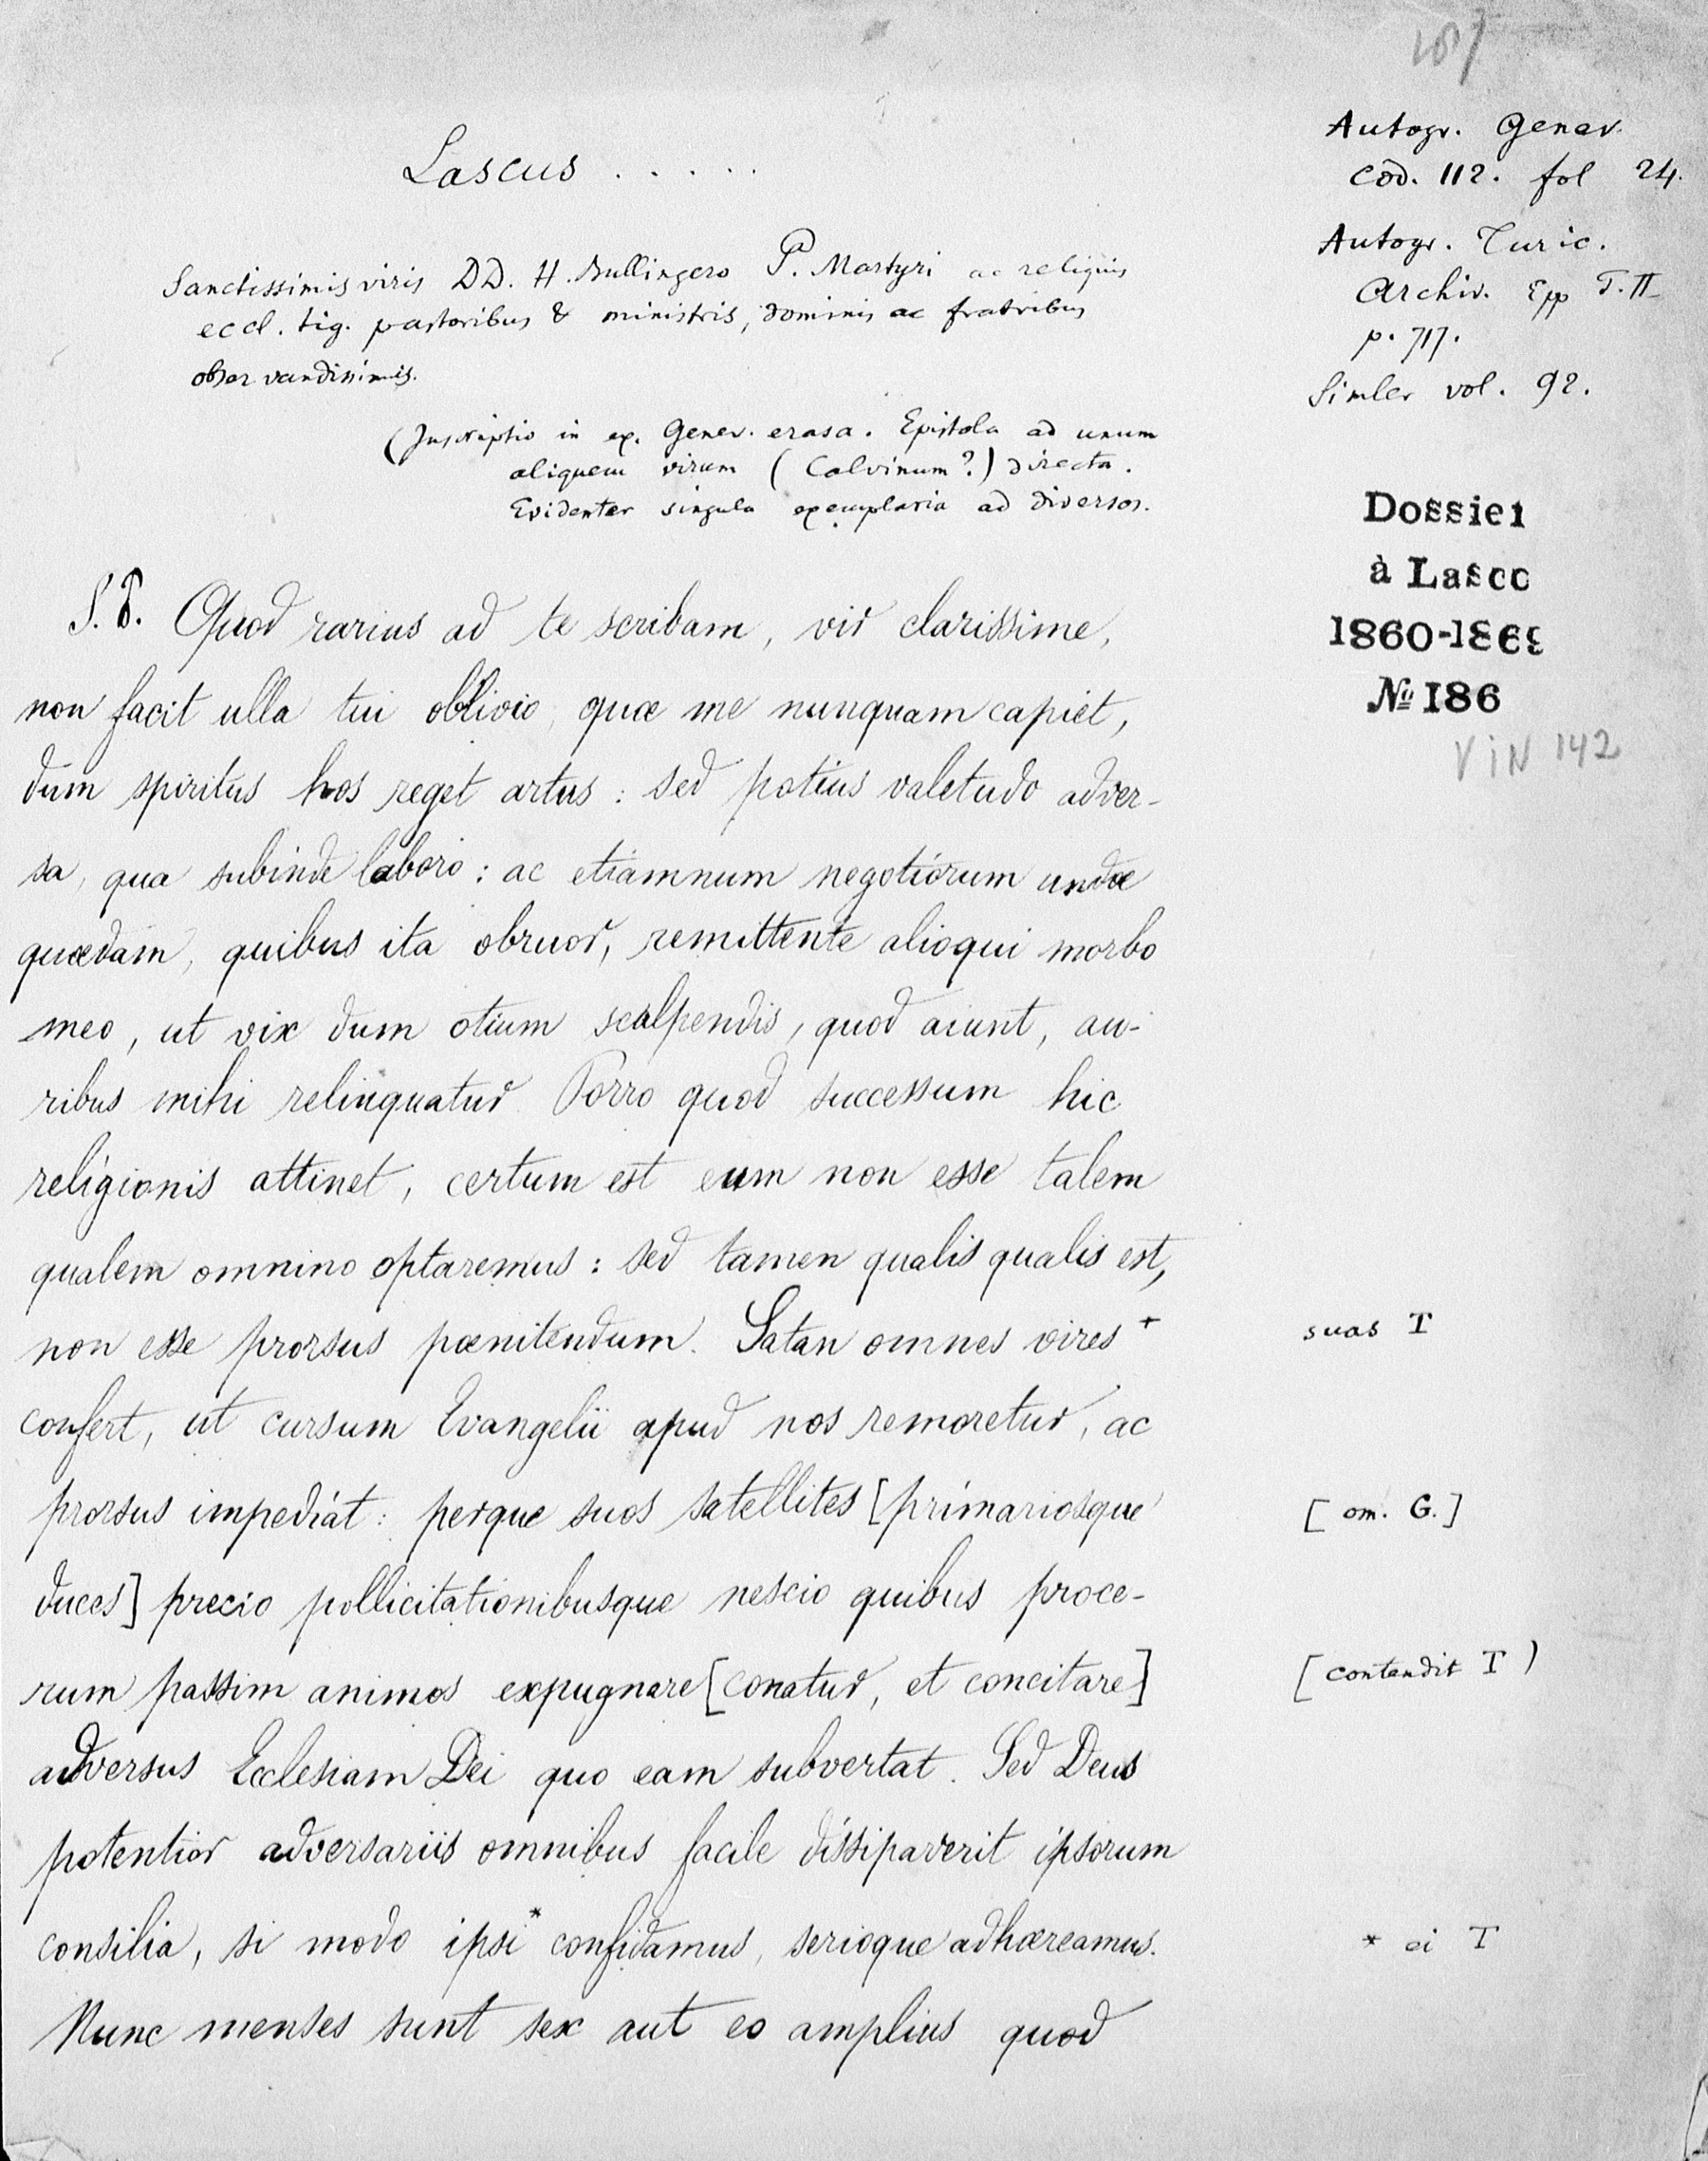 187
Lascus . . . . .
Autogr. Genev.
Cod. 112. fol 24.
Autogr. Turic.
Archiv. Epp T. II
p. 717.
Simler vol. 92.
Sanctissimis viris DD. H. Bullingero P. Martyri ac reliquis
eccl. tig. pastoribus & ministris, dominis ac fratribus
observandissimis.
(Inscriptio in ex. Genev. erasa. Epistola ad unum
aliquem virum (Calvinum?) directa.
Evidenter singula exemplaria ad diversos.
Dossier
à Lasco
1860-1869
No 186
VIN 142
S. P. Quod rarius ad te scribam, vir clarissime,
non facit ulla tui oblivio, quæ me nunquam capiet,
dum spiritus hos reget artus : sed potius valetudo adver-
sa, qua subinde laboro : ac etiamnum negotiorum undæ
quædam, quibus ita obruor, remittente alioqui morbo
meo, ut vix dum otium scalpendis, quod aiunt, au-
ribus mihi relinquatur. Porro quod successum hic
religionis attinet, certum est eum non esse talem
qualem omnino optaremus : sed tamen qualis qualis est,
non esse prorsus pœnitendum. Satan omnes vires +
suas T
confert, ut cursum Evangelii apud nos remoretur, ac
prorsus impediat : perque suos satellites [primariosque
[ om. G. ]
duces] precio pollicitationibusque nescio quibus proce-
rum passim animos expugnare [conatur, et concitare]
[ contendit T )
adversus Ecclesiam Dei quo eam subvertat. Sed Deus
potentior adversariis omnibus facile dissipaverit ipsorum
consilia, si modo ipsi * confidamus, serioque adhæreamus.
* ei T
Nunc menses sunt sex aut eo amplius quod